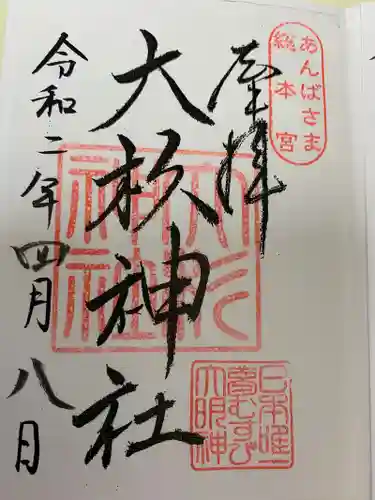 あんばさま
総本宮
奉拝
大杉神社
令和二年四月八日
大杉神社
日本唯一
夢むすび
大明神